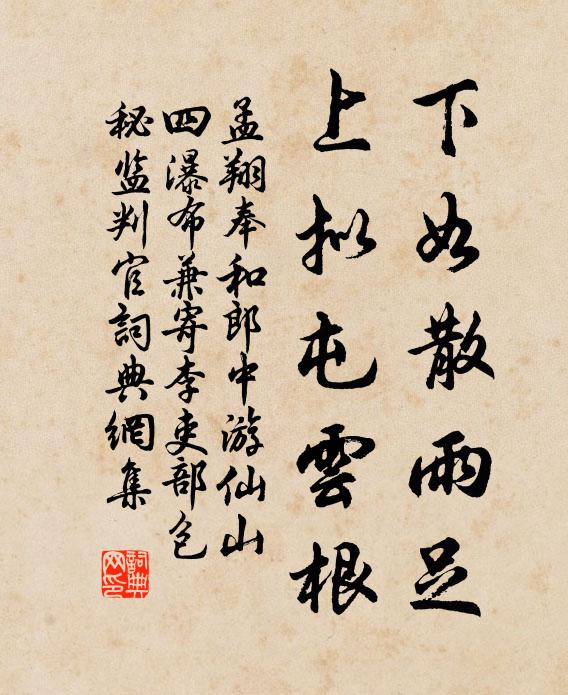 下如散雨足
上拟屯雲根
孟翔奉和郎中游仙山
四瀑布兼寄李吏部包
秘监判官詞典網集
詞典
网印